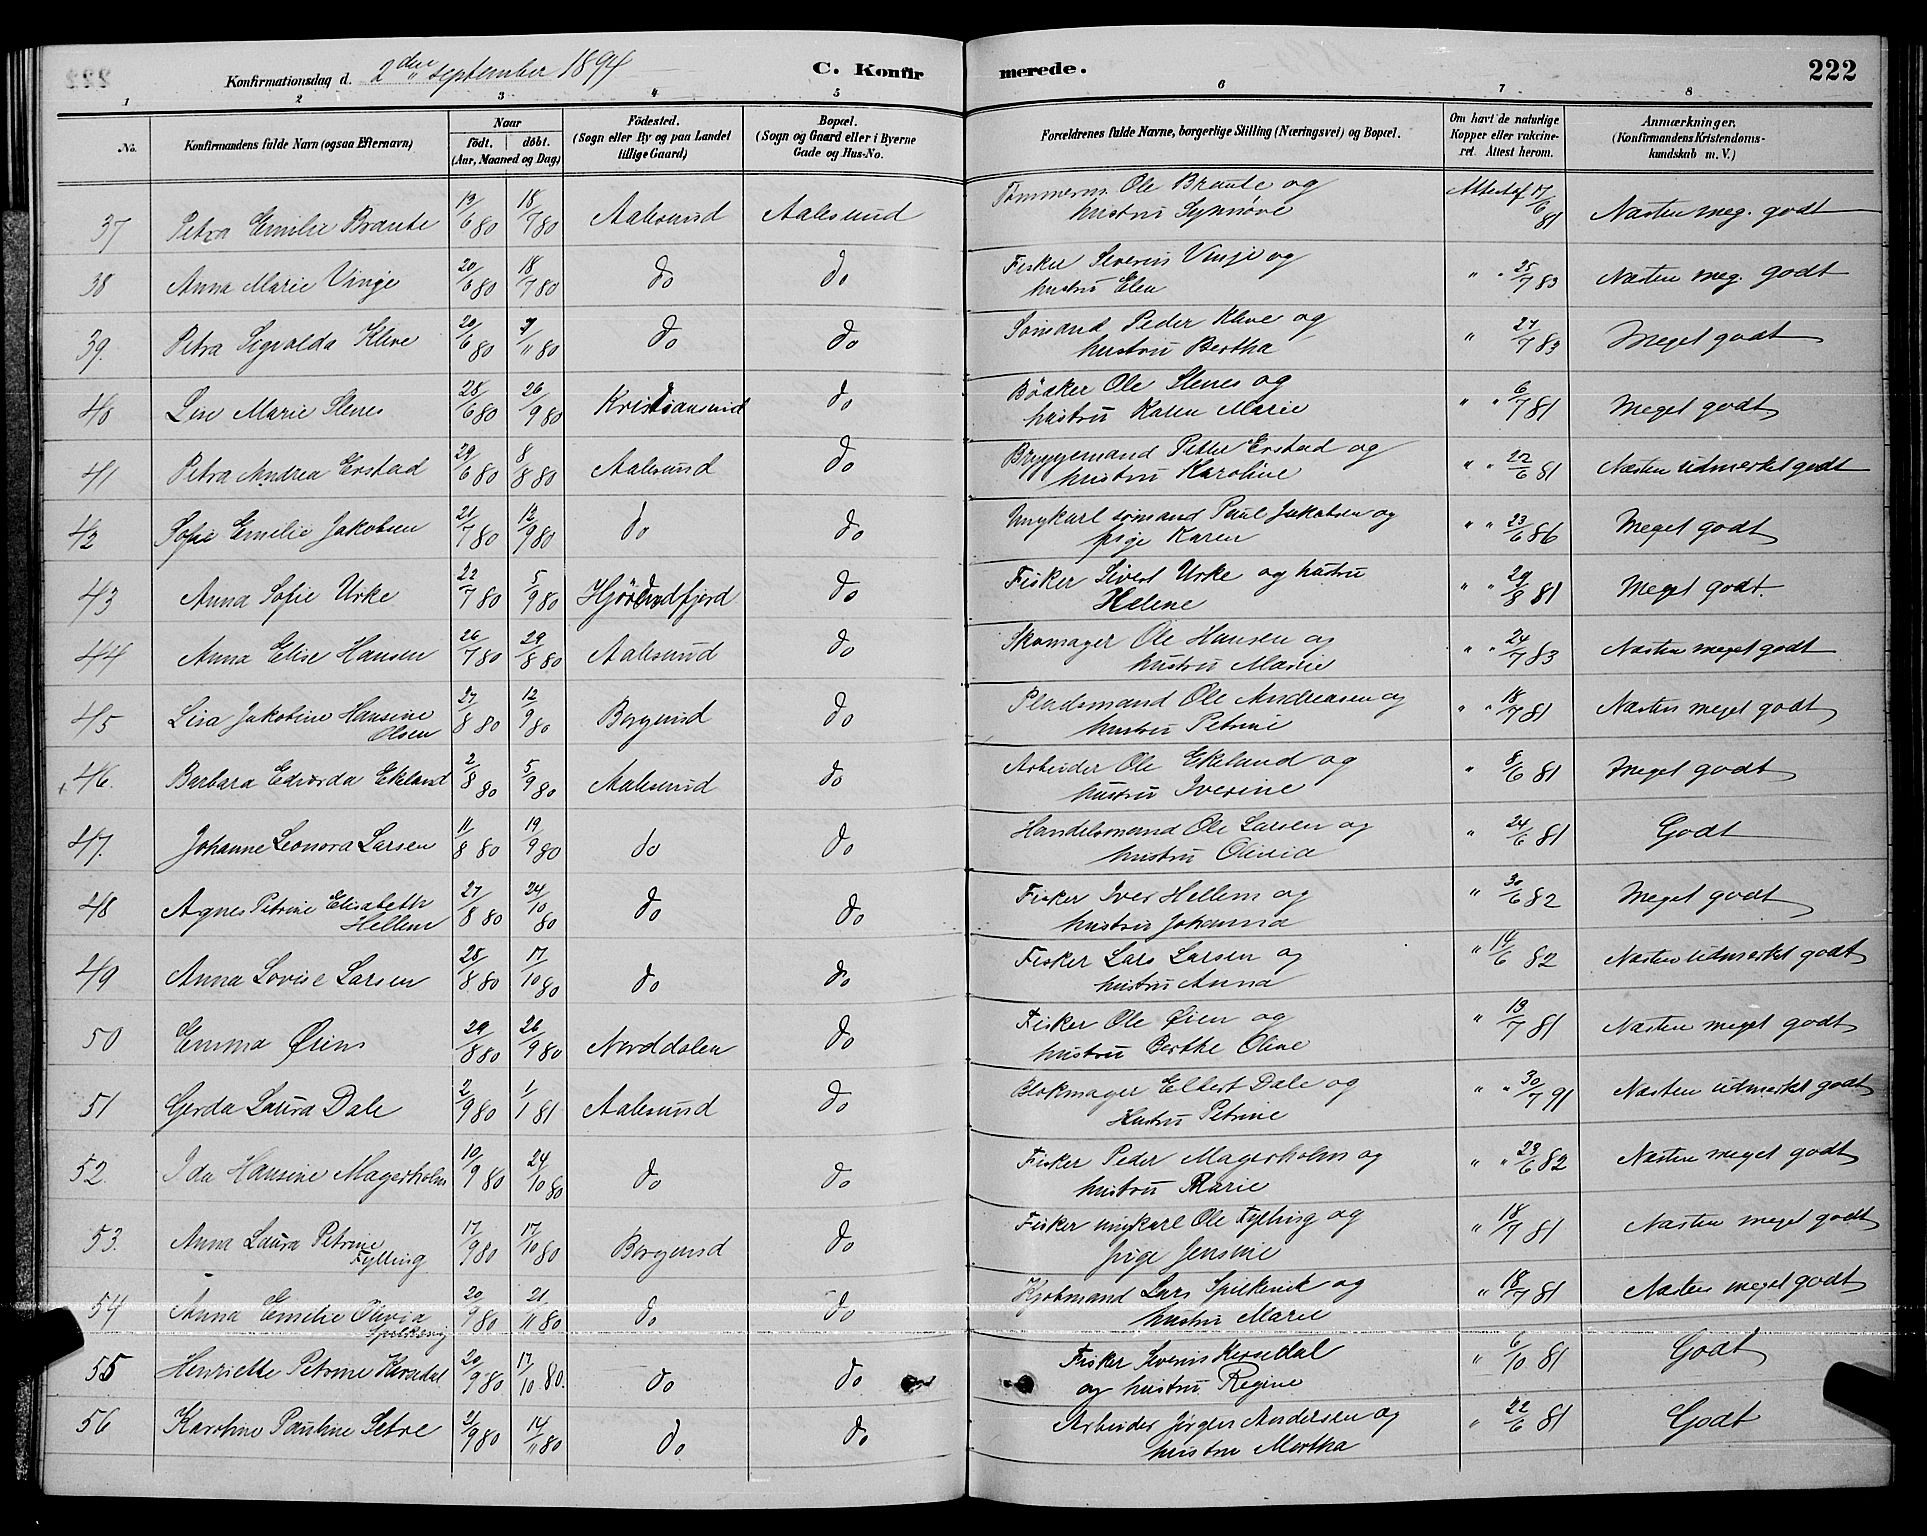 Konfirmationsdag d. 2den september 1894 C. Konfir merede. 222
1 2 3 4 5 6 7 8
No. Konfirmandens fulde Navn (ogsaa Efternavn) Naar født. døbt. (Aar, Maaned og Dag) Fødested. (Sogn eller By og paa Landet tillige Gaard) Bopæl. (Sogn og Gaard eller i Byerne Gade og Hus-No. Forældrenes fulde Navne, borgerlige Stilling (Næringsvei) og Bopæl. Om havt de naturlige Kopper eller vakcineret. Attest herom. Anmærkninger. (Konfirmandens Kristendomskundskab m. V.)
37 Petra Emilie Braute 13/6 80 18/7 80 Aalesund Aalesund Tømmerm. Ole Braute og Attest af 17/6 81 Næsten meg. godt
hustru Synnøve
38 Anna Marie Vinje 20/6 80 18/7 80 do do Fisker Severin Vinje og " " 25/7 83 Næsten meg. godt
hustru Elen
39. Petra Sigvalda Kleve 20/6 80 7/11 80 do do Sømand Peder Kleve og " 27/7 83 Meget godt
hustru Bertha
40 Line Marie Stenes 28/6 80 26/9 80 Kristiansund do Bødker Ole Stenes og " " 6/7 81 Meget godt
hustru Karen Marie
41 Petra Andrea Erstad 29/6 80 8/8 80 Aalesund do Bryggemand Petter Erstad og " " 22/6 81 Næsten udmerket godt
hustru Karoline
42 Sofie Emelie Jakobsen 21/7 80 12/9 80 do do Ungkarl sømand Paul Jakobsen og " " 23/6 86 Meget godt
pige Karen
43 Anna Sofie Urke 22/7 80 5/9 80 Hjørundfjord do Fisker Sivert Urke og hustru " " 29/8 81 Meget godt.
Helene
44 Anna Elise Hansen 26/7 80 29/8 80 Aalesund do Skomager Ole Hansen og " " 24/7 83 Næsten meget godt
hustru Marie
45 Lisa Jakobine Hansine 27/8 80 12/9 80 Borgund do Pladsmand Ole Andreasen og " " 18/7 81 Næsten meget godt
Olsen hustru Petrine
46. Barbara Edvarda Ekeland 2/8 80 5/9 80 Aalesund do Arbeider Ole Ekeland og " 8/6 81 Meget godt
hustru Iverine
47. Johanne Leonora Larsen 11/8 80 19/9 80 do do Handelsmand Ole Larsen og " 24/6 81 Godt
hustru Olivia
48 Agnes Petrine Elisabeth 27/8 80 24/10 80 do do Fisker Iver Hellem og " 30/6 82 Meget godt
Hellem hustru Johanna
49 Anna Lovise Larsen 28/8 80 17/10 80 do do Fisker Lars Larsen og " 14/6 82 Næsten udmerket godt
hustru Anna
50 Emma Øien 29/8 80 26/9 80 Norddalen do Fisker Ole Øien og " 19/7 81 Næsten meget godt
hustru Berthe Oline
51 Gerda Laura Dale 2/9 80 1/1 81 Aalesund do Blokmager Ellert Dale og " " 30/7 91 Næsten udmerket godt
Hustru Petrine
52. Ida Hansine Magerholm 10/9 80 24/10 80 do do Fisker Peder Magerholm og " " 29/6 82 Næsten meget godt
hustru Marie
53. Anna Laura Petrine 17/9 80 17/10 80 Borgund do Fisker ungkarl Ole Fylling og " 18/7 81 Næsten meget godt
Fylling pige Jensine
54 Anna Emelie Olivia 20/9 80 21/11 80 do do Kjøbmand Lars Spilkevik og " 18/7 81 Næsten meget godt
Spilkevig hustru Marie
55 Henriette Petrine Korsedal 20/9 80 17/10 80. do do Fisker Severin Korsedal " 6/10 81 Godt
og hustru Regine
56 Karoline Pauline Setre 21/9 80 14/11 80 do do Arbeider Jørgen Andersen og " 22/6 81 Godt
hustru Martha